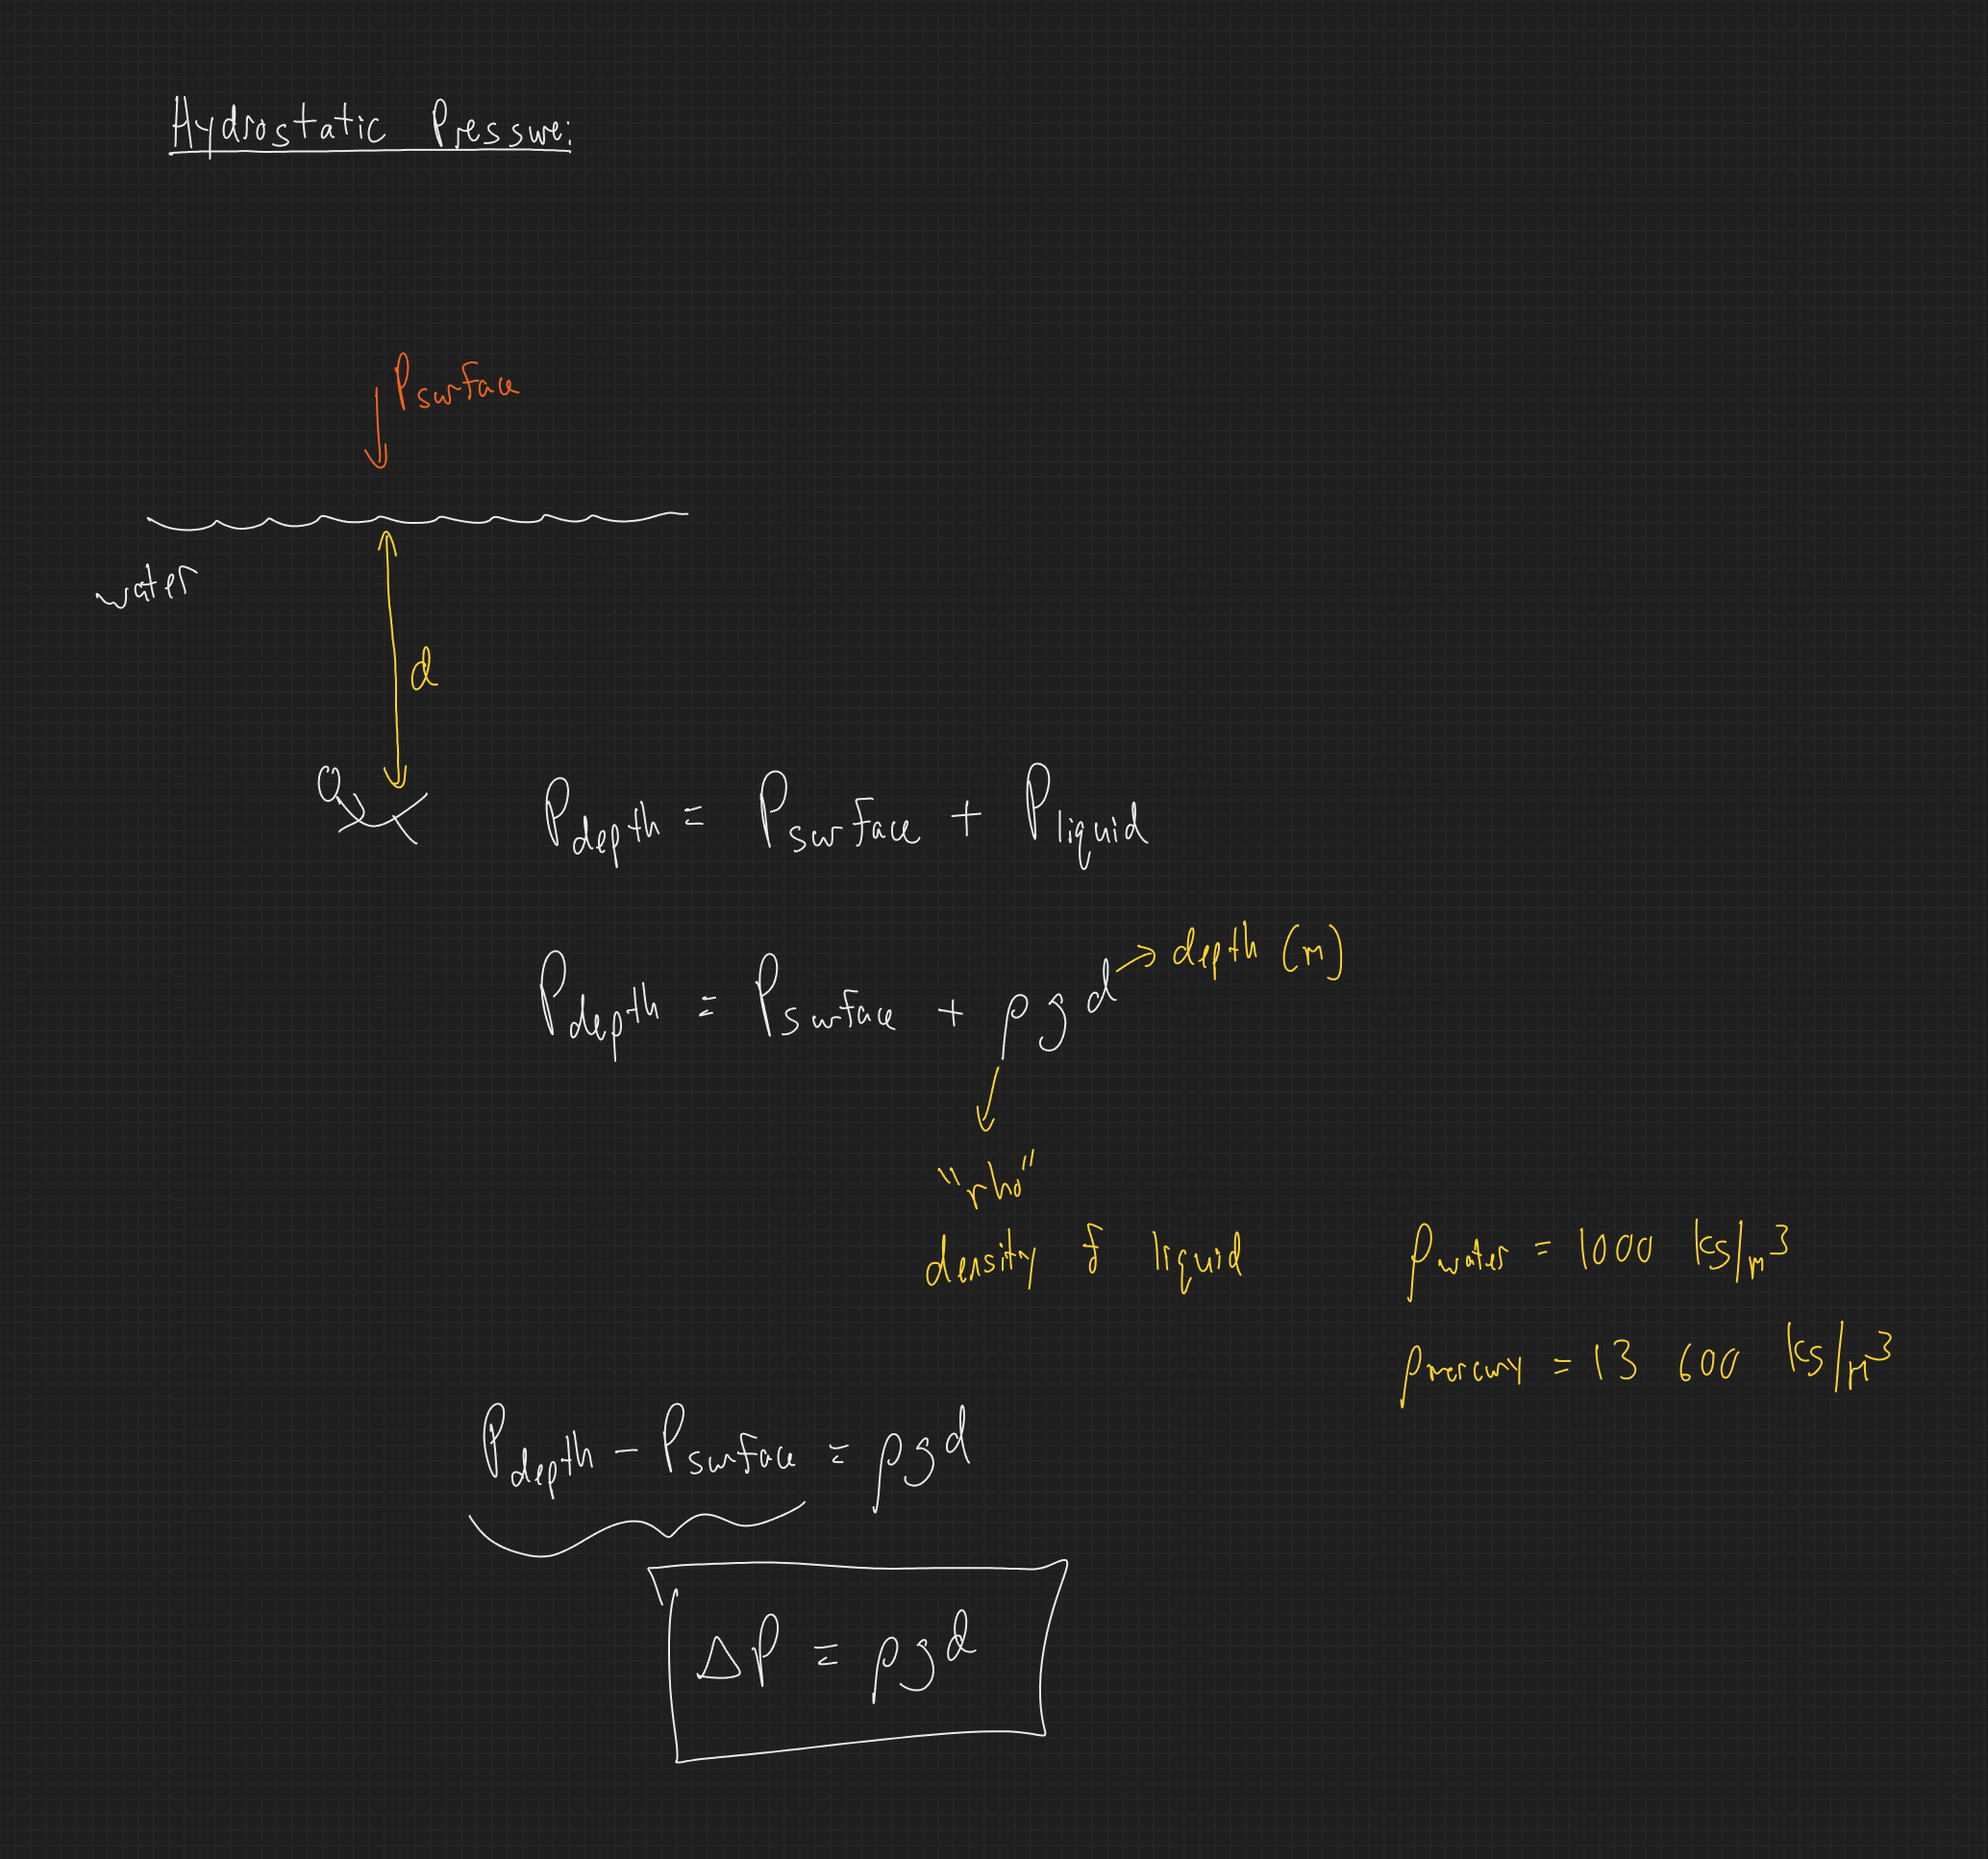 Hydrostatic Pressure:
Psurface
water
d
Pdepth = Psurface + Pliquid
Pdepth = Psurface + ρgd → depth (m)
"rho"
density of liquid
ρwater = 1000 kg/m³
ρmercury = 13 600 kg/m³
Pdepth - Psurface = ρgd
ΔP = ρgd